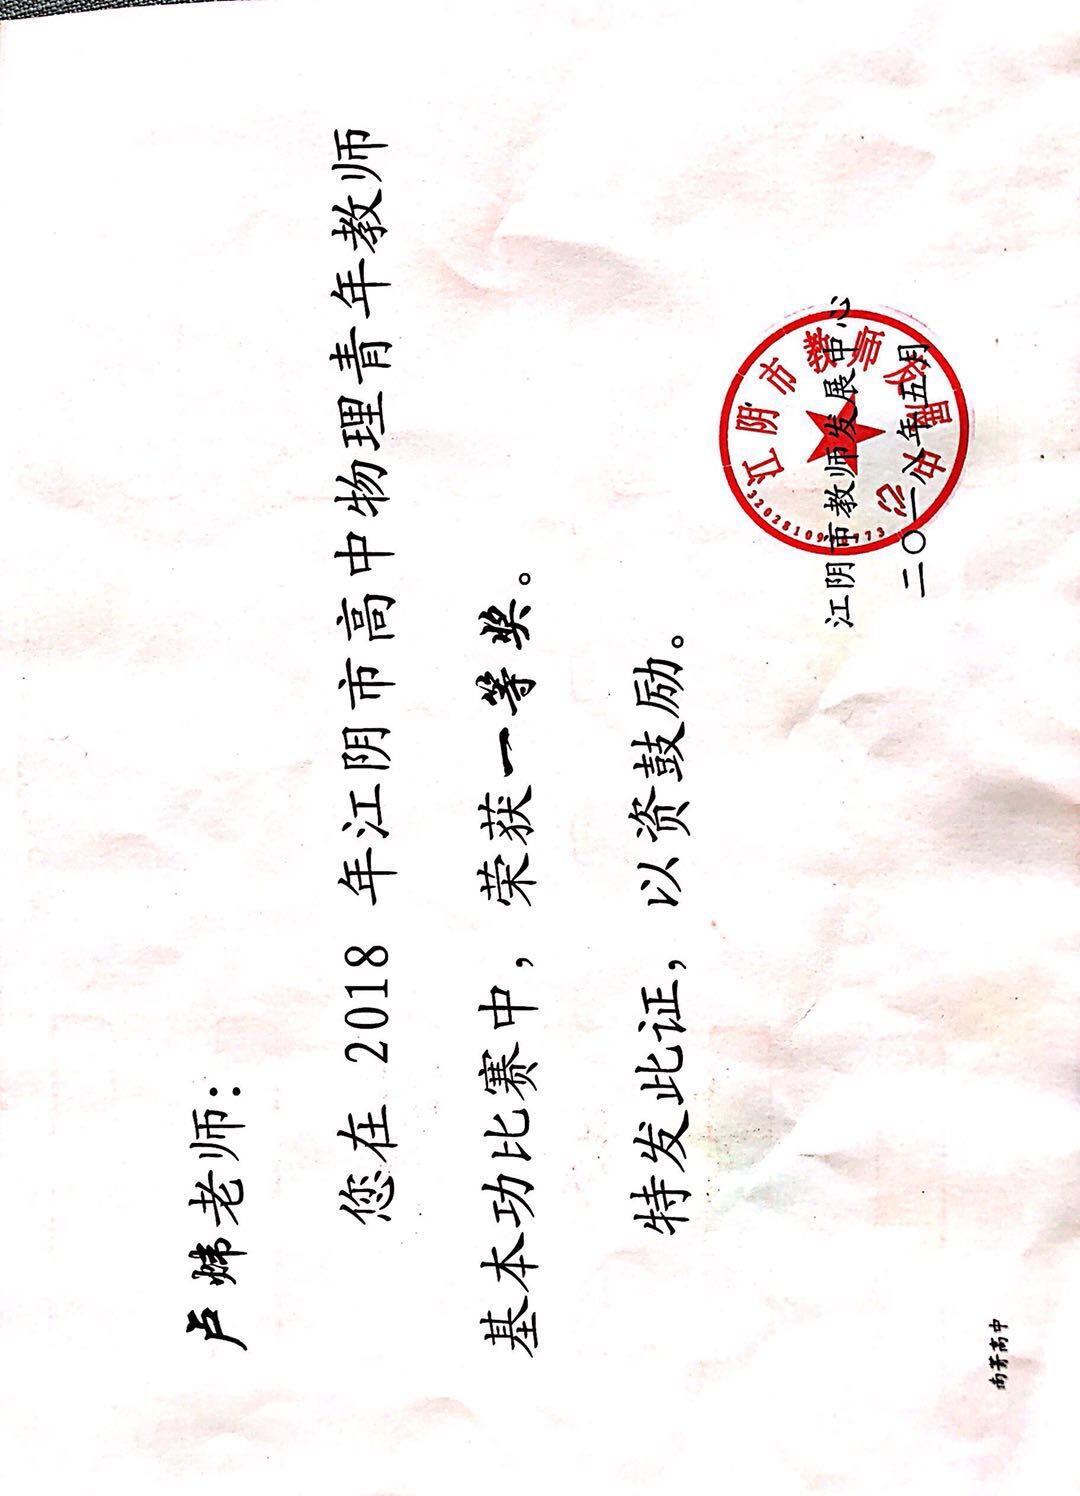 卢炜老师：
您在 2018 年江阴市高中物理青年教师
基本功比赛中，荣获一等奖。
特发此证，以资鼓励。
江阴市教师发展中心
二〇一八年五月
江阴市教师发展中心
南菁高中